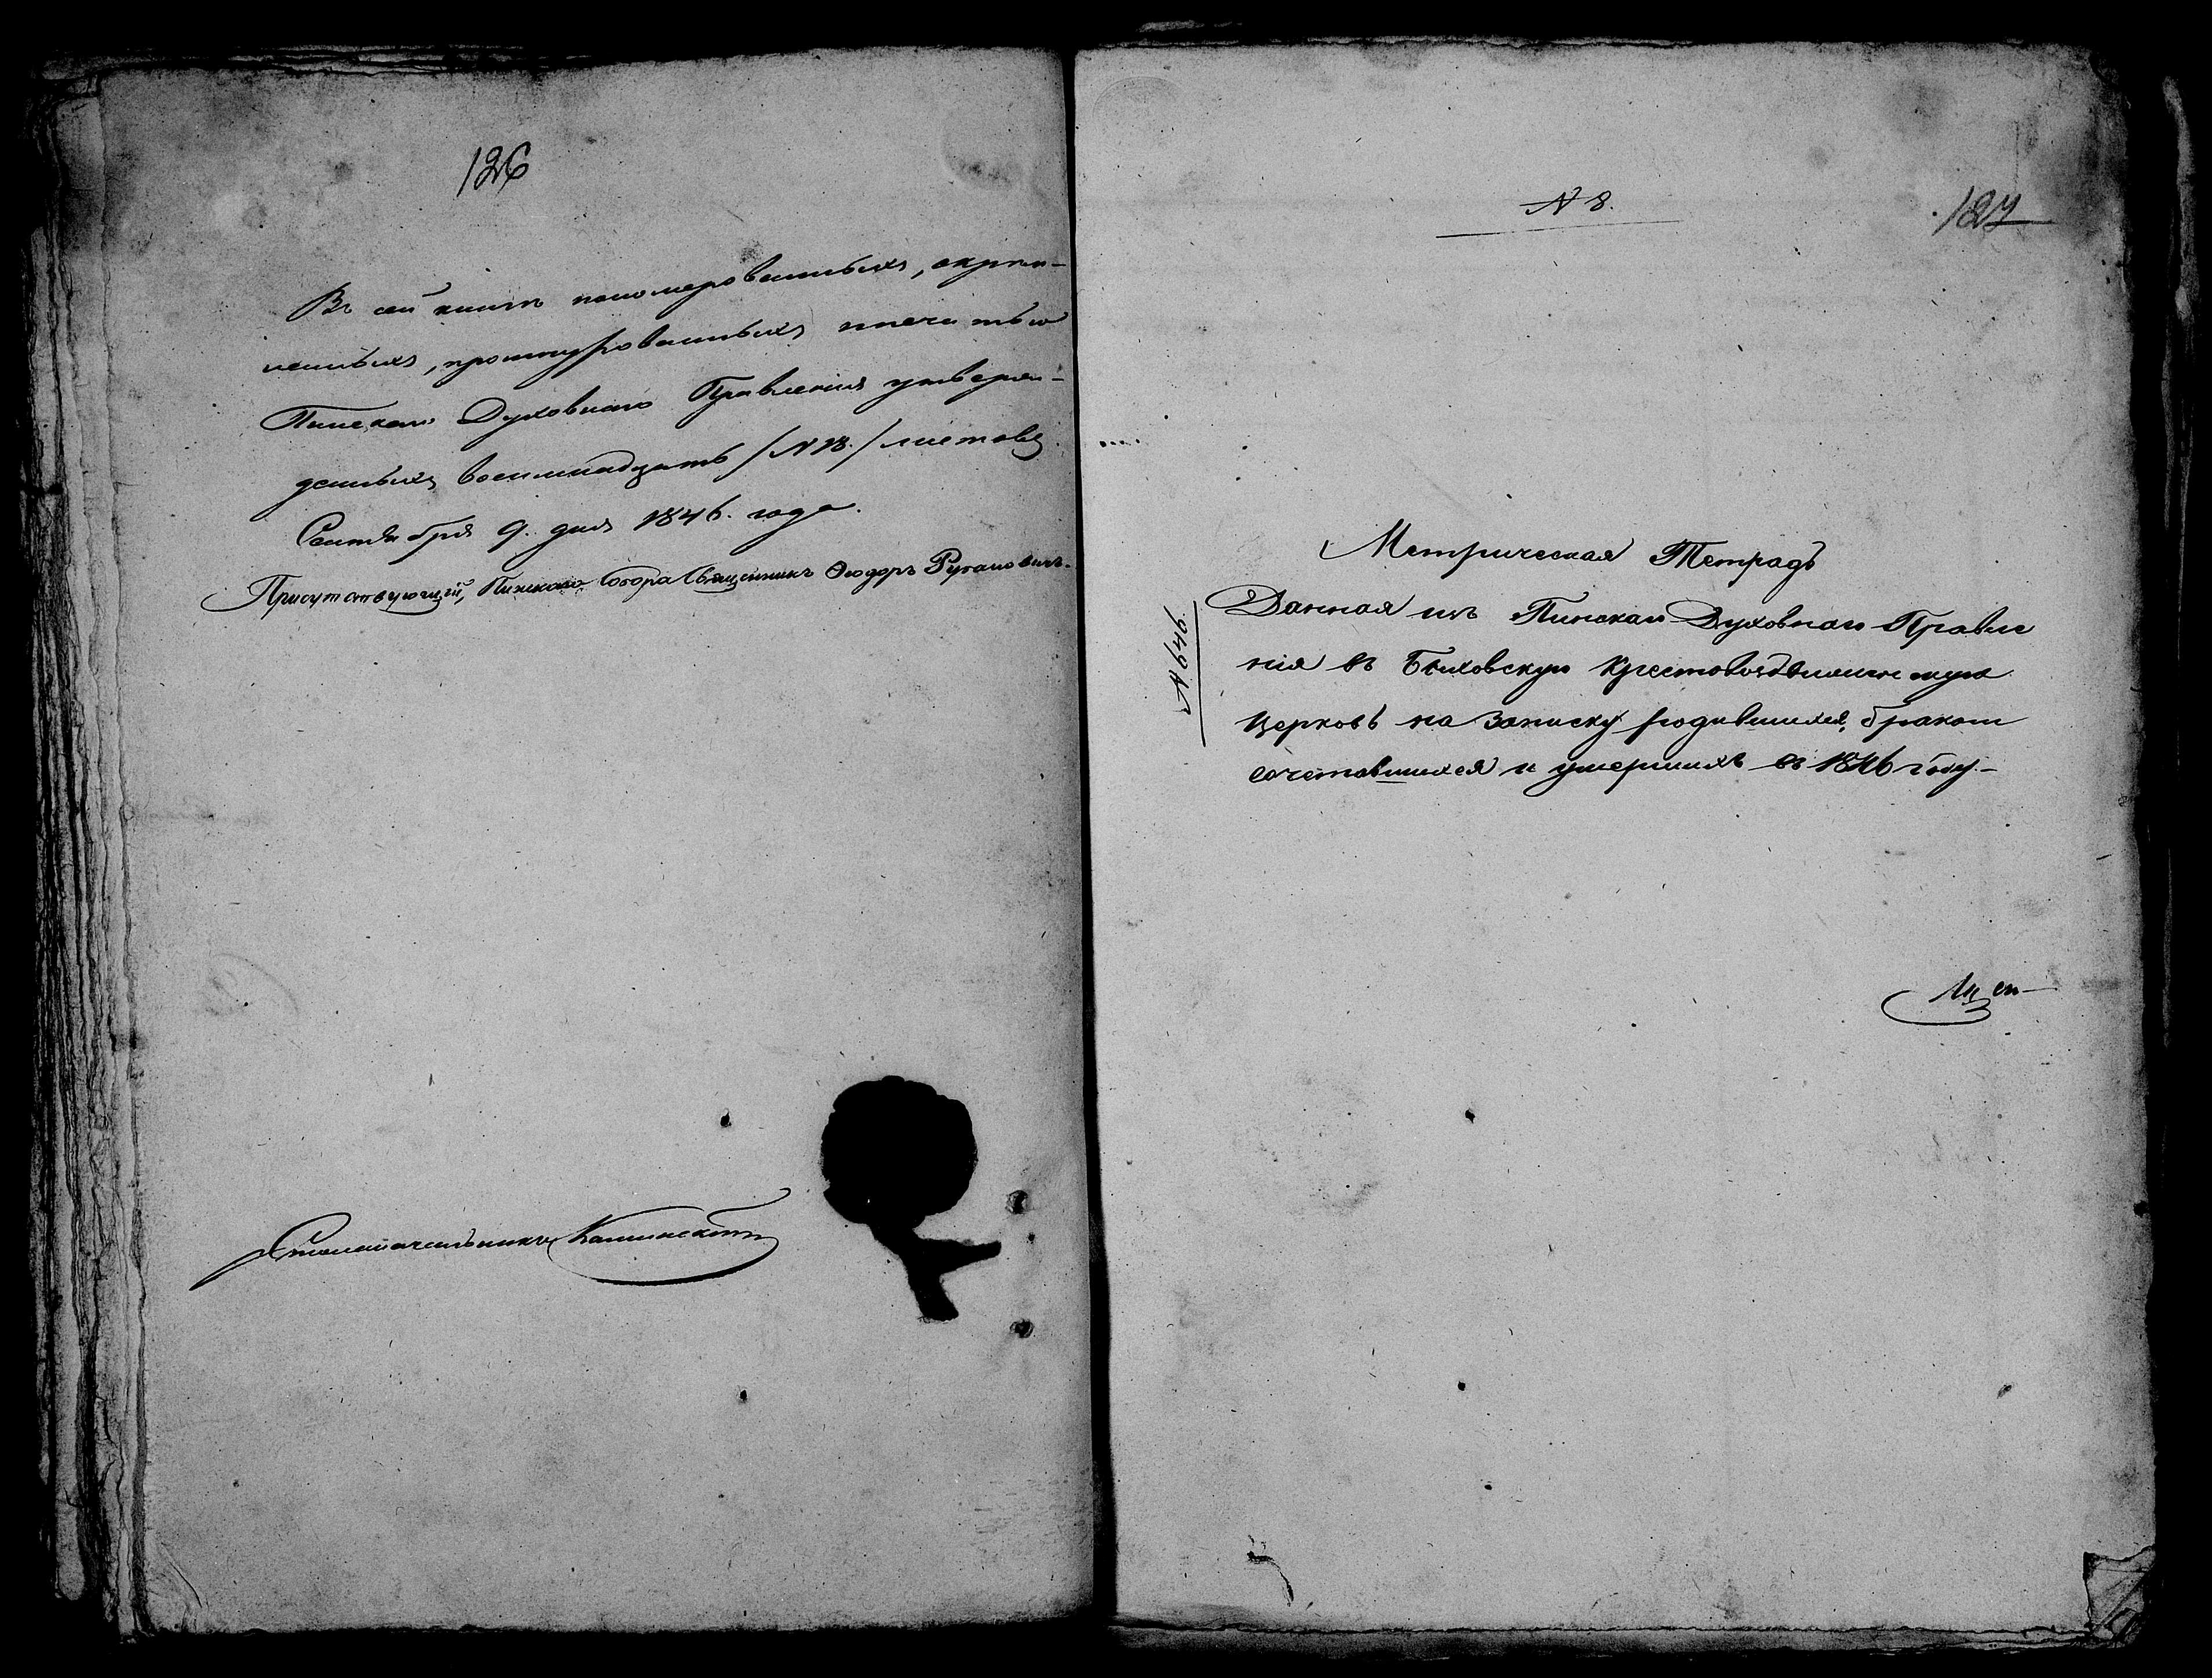 126
Въ сей книгѣ пономерованныхъ, скреп-
ленныхъ, прошнурованныхъ и печатью
Пинскаго Духовнаго Правленія утверж-
денныхъ восимнадцать /N 18./ листовъ
Сентября 9. дня 1846. года.
Присутствующій, Пинскаго Собора Священникъ Ѳеодоръ
Столоначальникъ
N 8.
127
N 646.
Метрическая Тетрадь
Данная изъ Пинскаго Духовнаго Правле
нія въ Крестовоздвиженскую
Церковь на записку родившихся, бракомъ
сочетавшихся и умершихъ въ 1846 году.